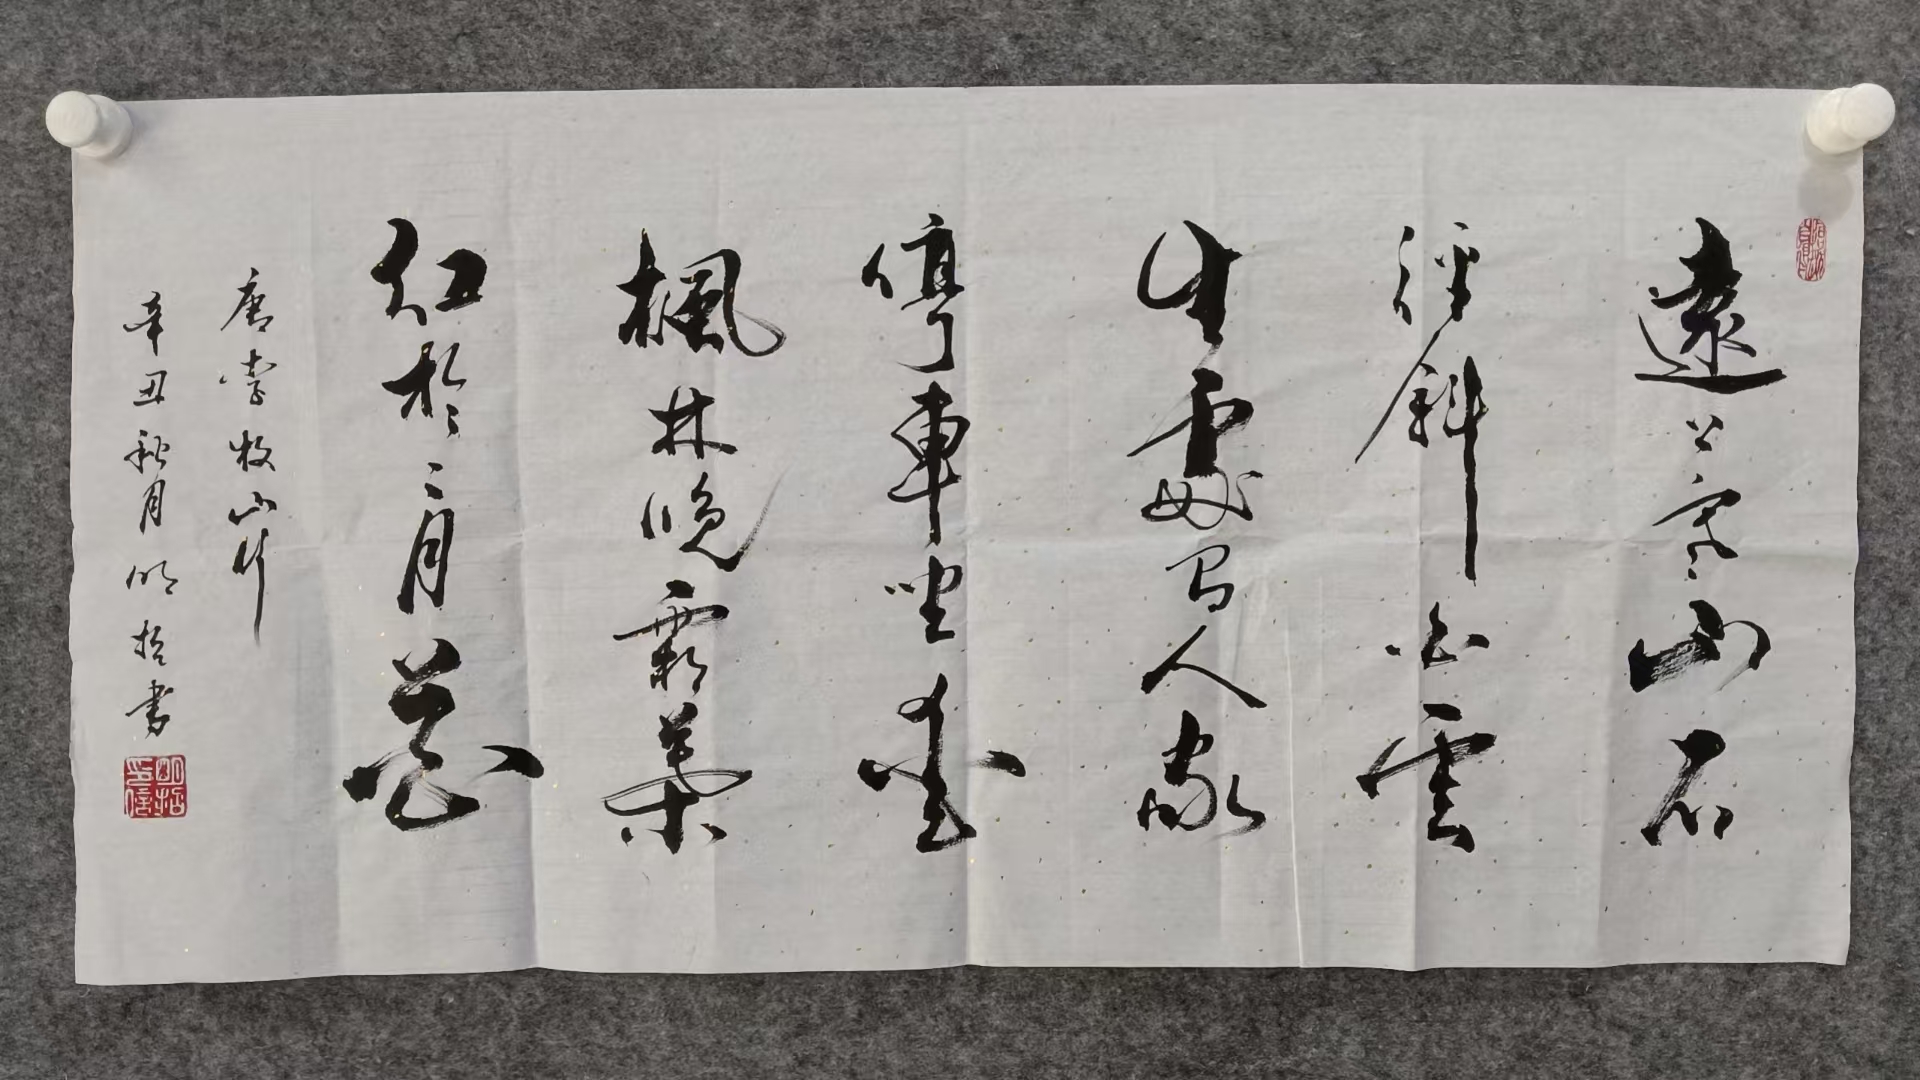 遠上寒山石
徑斜白雲
生處有人家
停車坐愛
楓林晚霜葉
紅於二月花
唐牧山行
辛丑秋月明哲书
明哲印信